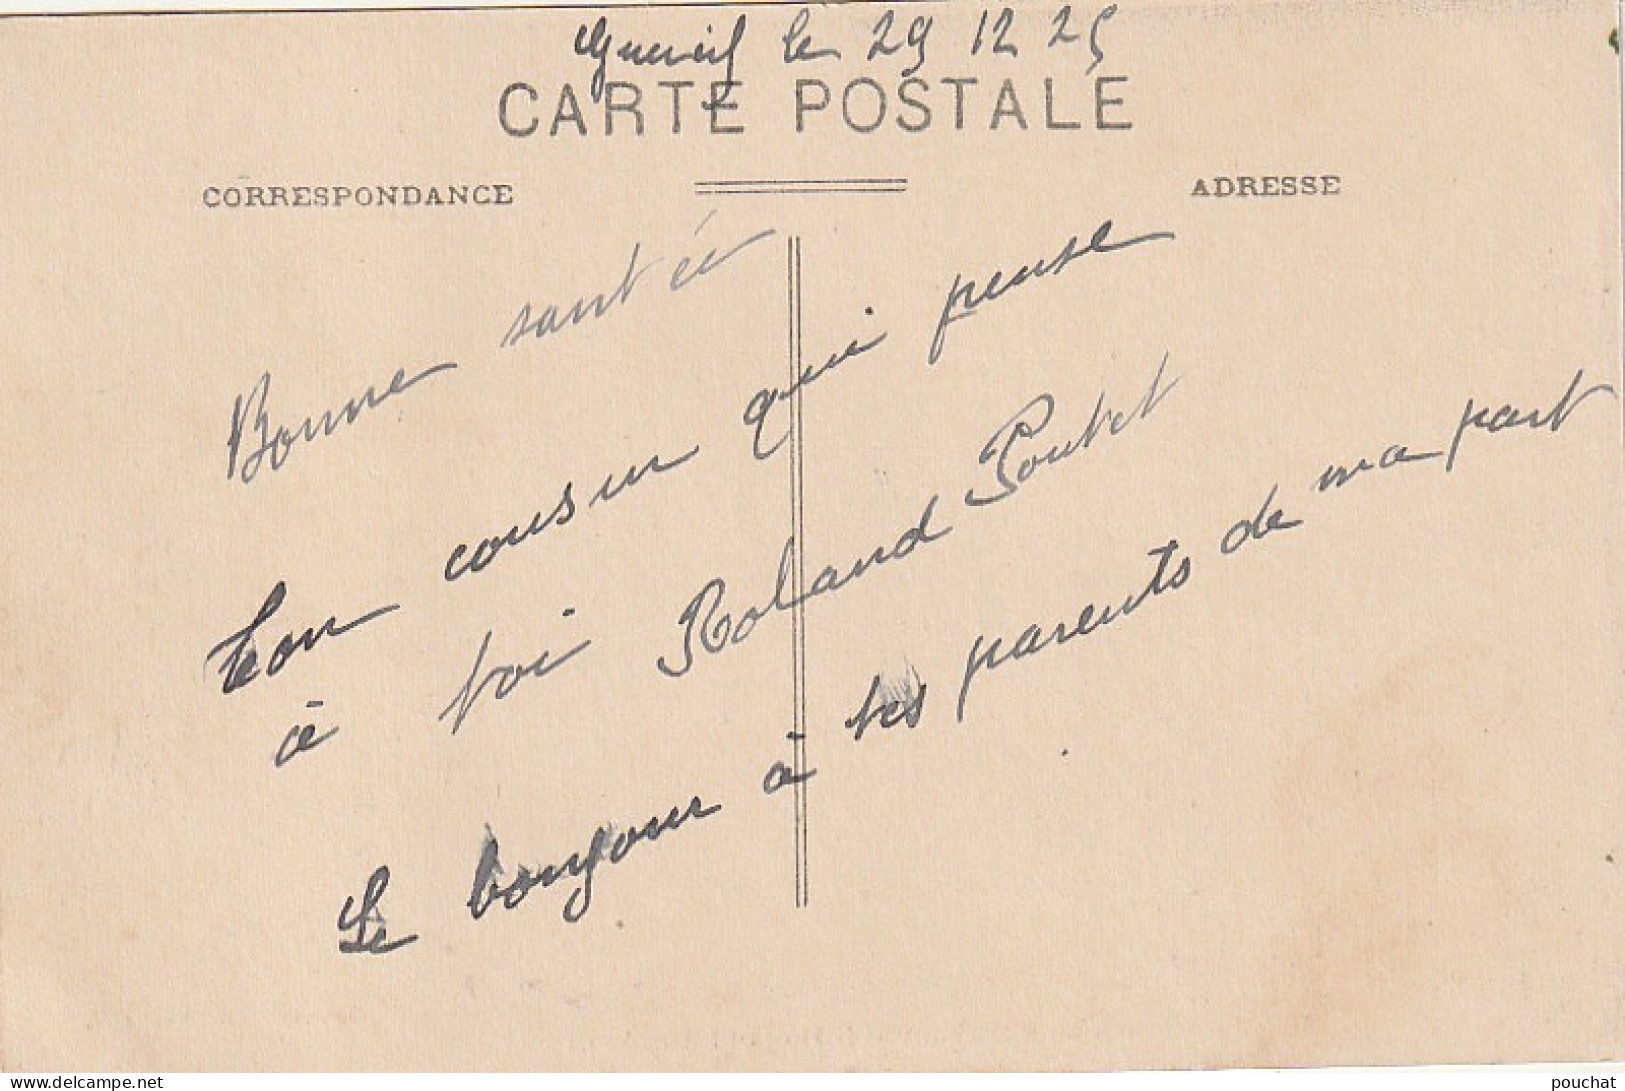 le 29 12 25
CARTE POSTALE
CORRESPONDANCE
ADRESSE
Bonne santée
ton cousin qui pense
à toi Roland Poutet
Le bonjour à tes parents de ma part
delcampe.net
pouchat